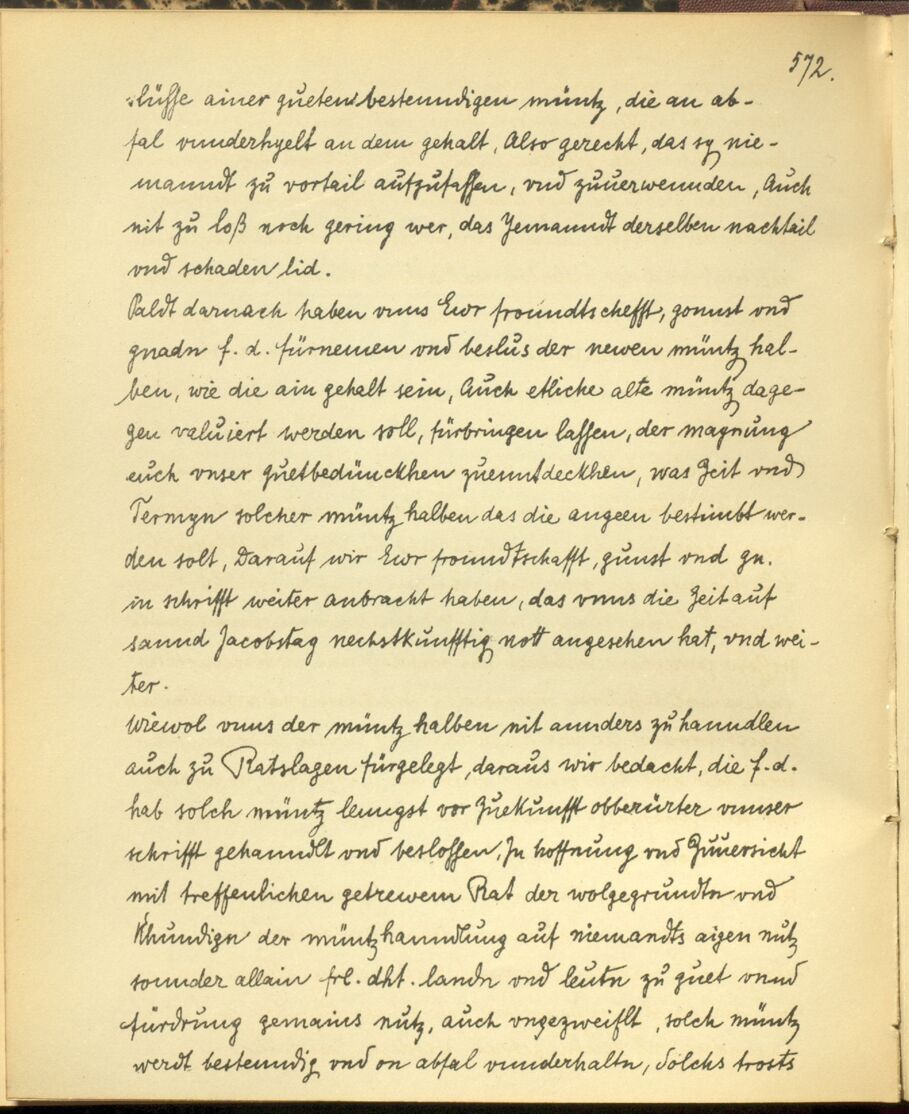 572.
slüsse ainer gueten bestenndigen müntz, die an ab-
fal vnnderhyelt an dem gehalt, Also gerecht, das sy nie-
manndt zu vortail aufzufassen, vnd zuuerwennden, Auch
nit zu loß noch gering wer, das Jemanndt derselben nachtail
vnd schaden lid.
Paldt darnach haben vnns Ewr froundtschefft, gonnst vnd
gnadn f. d. fürnemen vnd beslus der newen müntz hal-
ben, wie die ain gehalt sein, Auch etliche alte müntz dage-
gen valuiert werden soll, fürbringen lassen, der maynung
euch vnser guetbedünckhen zuenntdeckhen, was Zeit vnd
Termyn solcher müntz halben das die angeen bestimbt wer-
den solt, Darauf wir Ewr froundtschafft, gunst vnd gn.
in schrifft weiter anbracht haben, das vnns die Zeit auf
sannd Jacobstag nechstkunfftig nott angesehen hat, vnd wei-
ter.
Wiewol vnns der müntz halben nit annders zu hanndlen
auch zu Ratslagen fürgelegt, daraus wir bedacht, die f. d.
hab solch müntz lenngst vor Zuekunfft obberürter vnnser
schrifft gehanndlt vnd beslossen, In hoffnung vnd Zuuersicht
mit treffenlichen getrewem Rat der wolgegrundtn vnd
Khundign der müntzhanndlung auf niemandts aigen nutz
sonnder allain frl. dht. landn vnd leutn zu guet vnnd
fürdrung gemains nutz, auch vngezweiflt, solch müntz
werdt bestenndig vnd on abfal vnnderhaltn, Solchs trosts